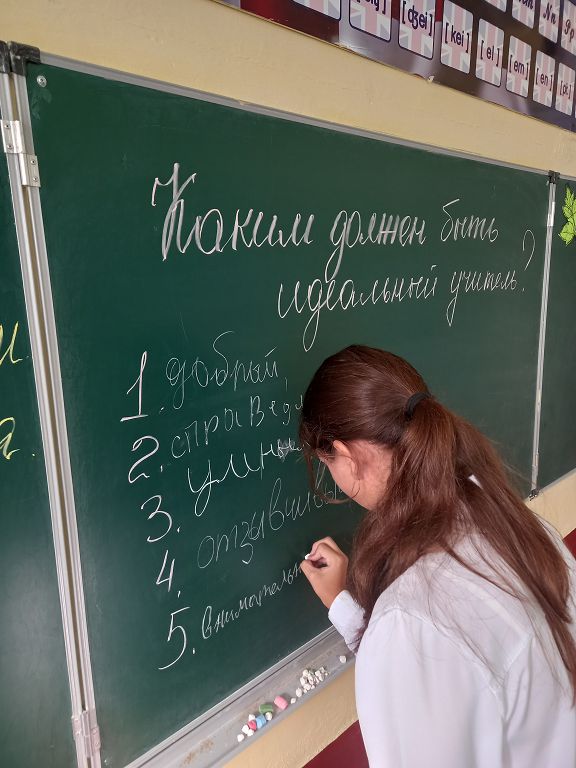 [ʤei] [kei] [el] [em] [en]
Каким должен быть
идеальный учитель?
1. добрый,
2. справедл
3. умный
4. отзывчивы
5. внимательн